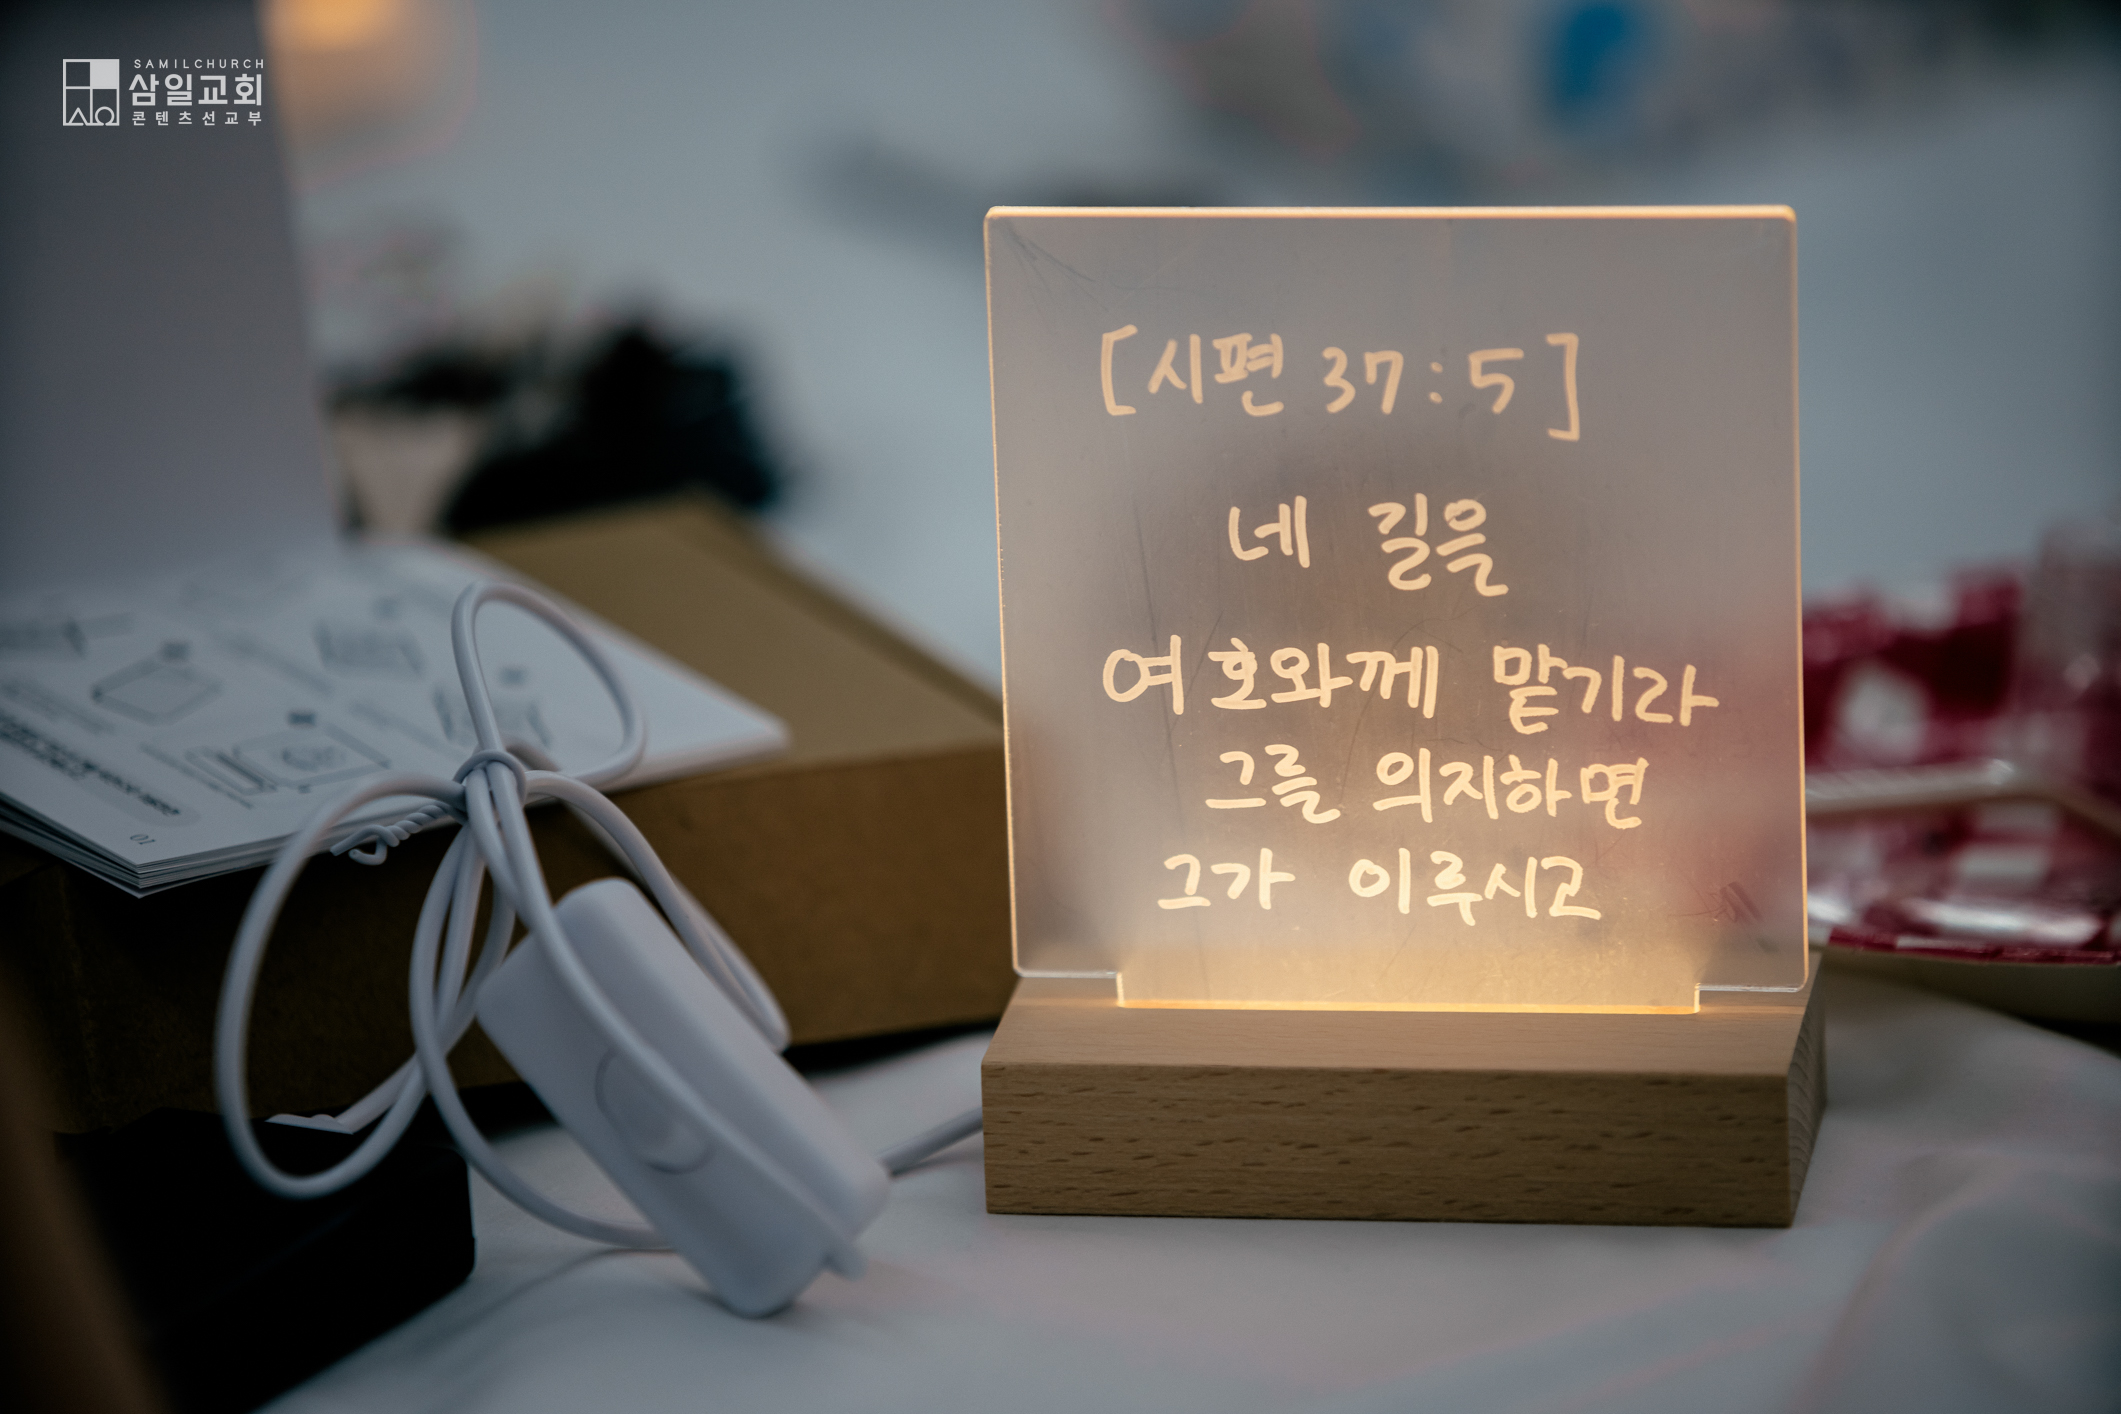 SAMILCHURCH
삼일교회
콘텐츠선교부
[시편 37:5]
네 길을
여호와께 맡기라
그를 의지하면
그가 이루시고
01